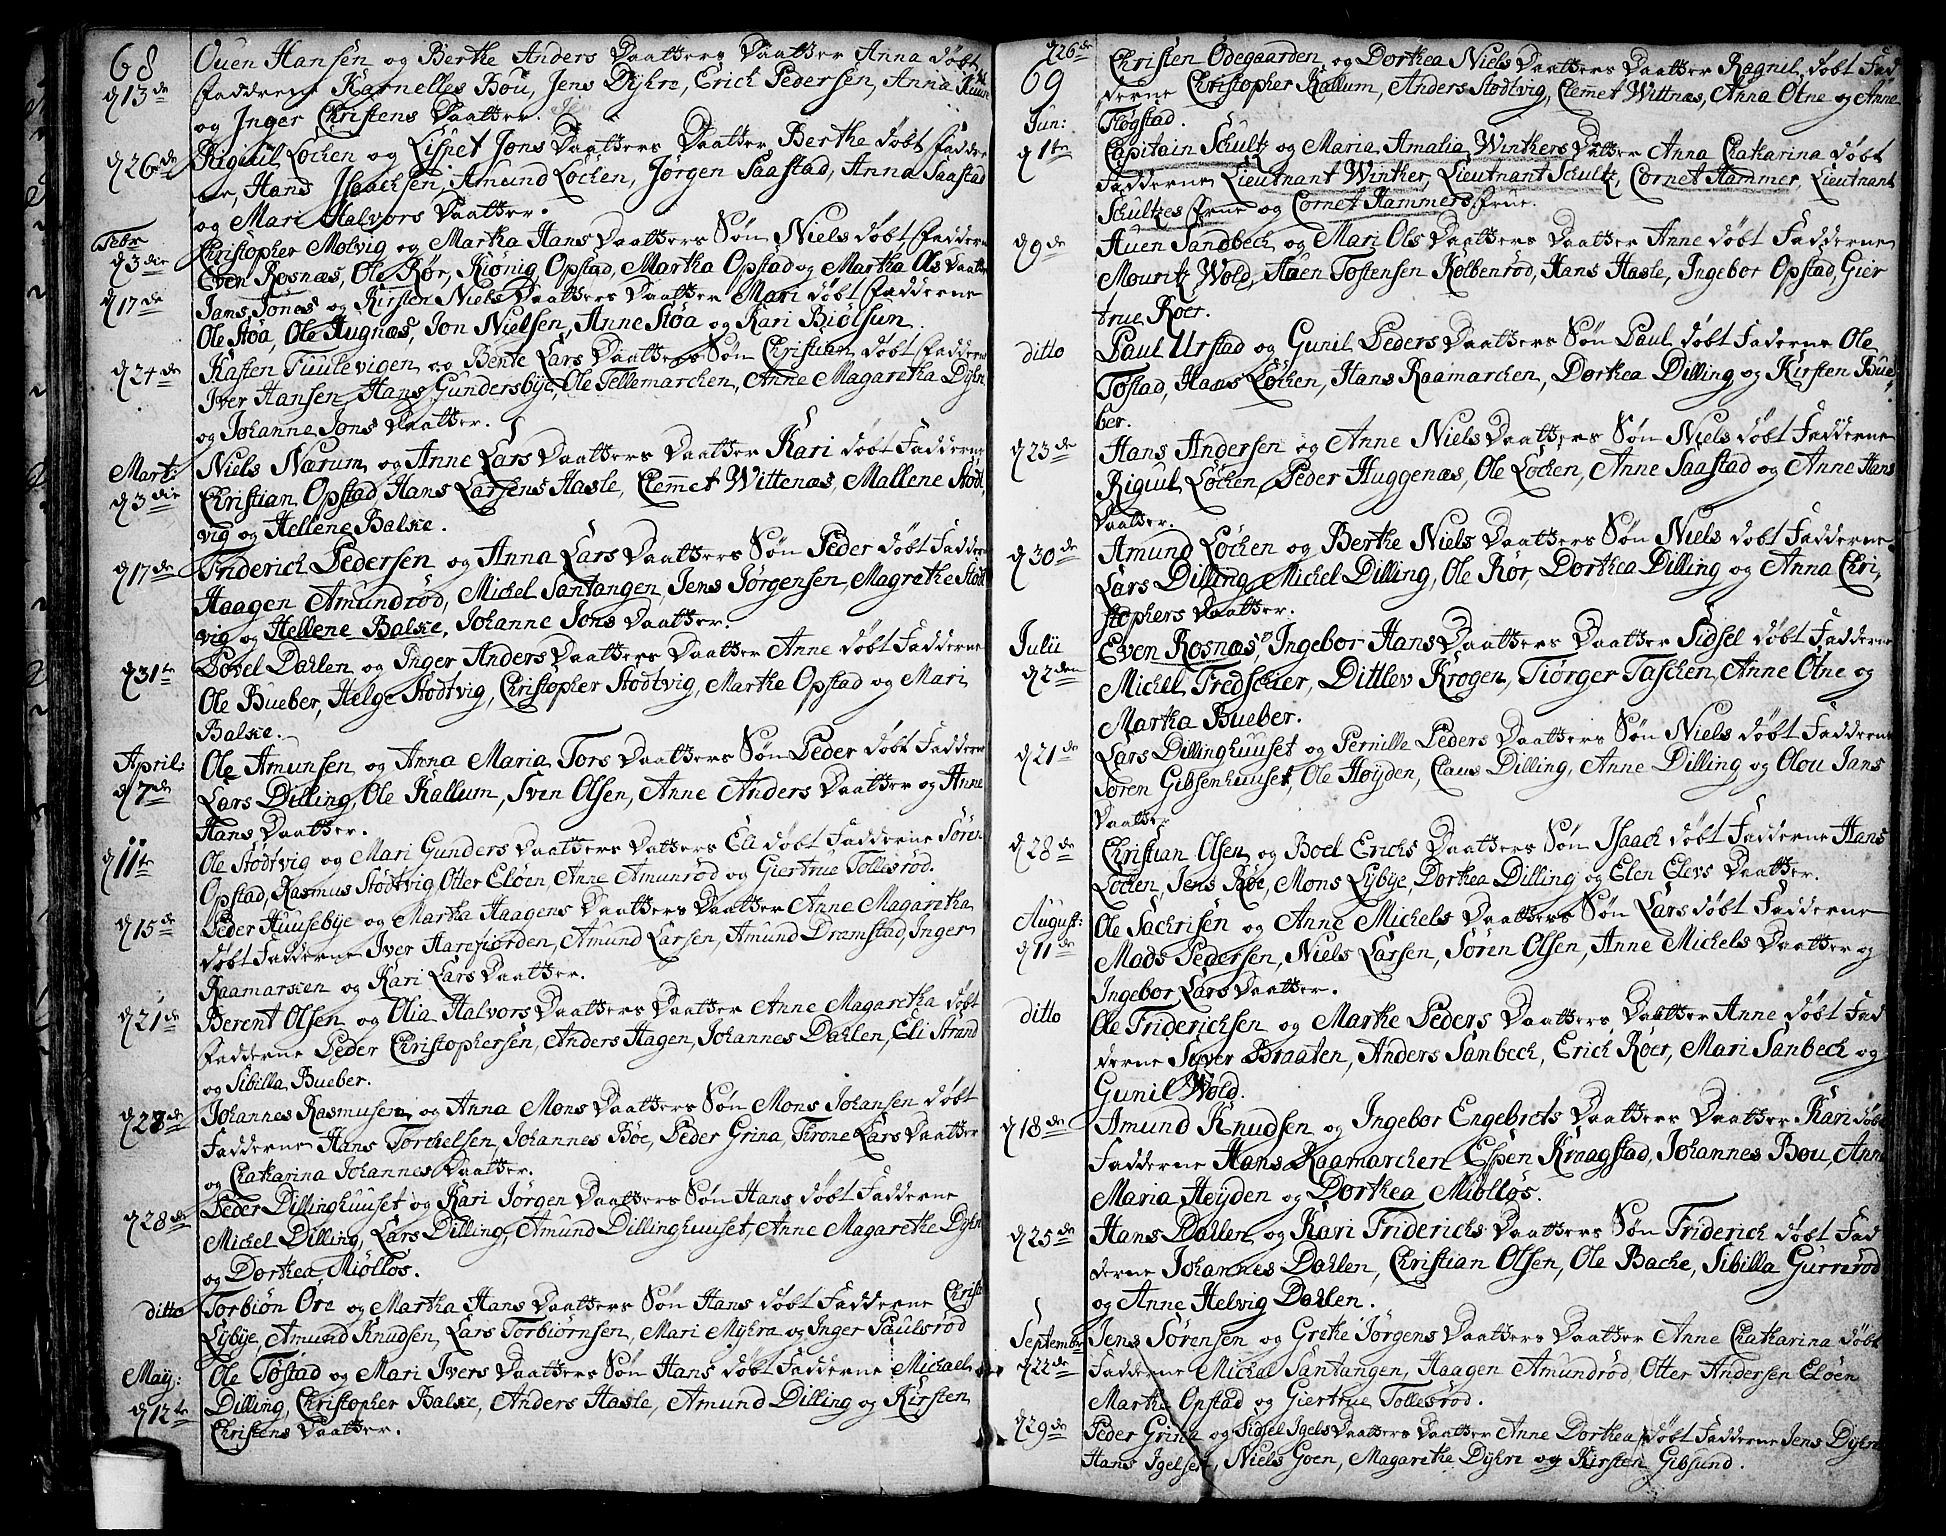 68
Ouen Hansen og Berthe Anders Daatters Daatter Anna døbt
d 13de Fadderne Karnelles Bou, Jens Dÿhre, Erich Pedersen, Anna
og Inger Christens Daatter.
d 26de Rigiul Løchen og Lisbet Jons Daatters Daatter Berthe døbt Fadder
er, Hans Isaachsen, Amund Løchen, Jørgen Saastad, Anna Saastad
og Mari Halvors Daatter.
Febr Christopher Molvig og Martha Hans Daatters Søn Niels døbt Faddern
d 3die Even Rosnæs, Ole Rør, Kiønig Opstad, Martha Opstad og Martha Ols Daatter
d 17de Jans Jonas og Kirsten Niels Daatters Daatter Mari døbt Fadderne
Ole Støa, Ole Augnæs, Jon Nielsen, Anne Støa og Kari Biølsun.
d 24de Kasten Tuulevigen og Berte Lars Daatters Søn Christian døbt Faddern
Iver Hansen, Hans Gundersbÿe, Ole Tellemarchen, Anne Magaretha Dÿhr
og Johanne Jons Daatter.
Mart: Niels Nærum og Anne Lars Daatters Daatter Kari døbt Fadderne
d 3die Christian Opstad, Hans Larsens Hasle, Clemmet Wittenæs, Mallene Stødt,
vig og Hellene Balke.
d 17de Friderich Pedersen og Anna Lars Daatters Søn Peder døbt Faddern
Haagen Amundrød, Michel Santangen, Jens Jørgensen, Magrethe Stødt
vig og Hellene Balke, Johanne Jons Daatter.
d 31te Povel Dahlen og Inger Anders Daatters Daatter Anne døbt Fadderne
Ole Bueber, Helge Stødtvig, Christopher Stødtvig, Marthe Opstad og Mari
Balke.
April: Ole Amunsen og Anna Maria Tors Daatters Søn Peder døbt Faddern
d 7de Lars Dilling, Ole Kallum, Sven Olsen, Anne Anders Daatter og Anne
Hans Daatter.
d 11te Ole Stødtvig og Mari Gunders Daatters Datters Eli døbt Fadderne Søren
Opstad, Rasmus Stødtvig, Otter Eløen, Anne Amunrød og Giertrue Tollesrød.
d 15de Peder Huusebÿe og Martha Haagens Daatters Daatter Anne Magaretha
døbt Fadderne Iver Harefiorden, Amund Larsen, Amund Dramstad, Inger
Raamarken og Kari Lars Daatter.
d 21de Berent Olsen og Olia Halvors Daatters Daatter Anne Magaretha døbt
Fadderne Peder Christophersen, Anders Hagen, Johannes Dahlen, Eli Strand
og Sibilla Bueber.
Johannes Rasmusen og Anna Mons Daatters Søn Mons Johansen døbt
Fadderne Hans Torchelsen, Johannes Bøe, Peder Grina, Throne Lars Daatter
og Chatharina Johannes Daatter.
d 28de Peder Dillinghuuset og Kari Jørgen Daatters Søn Hans døbt Fadderne
Michel Dilling, Lars Dilling, Amund Dillinghuuset, Anne Magarethe Dÿhr
og Dorthea Miølløs.
ditto Torbiön Ore og Martha Hans Daatters Søn Hans døbt Fadderne
Lÿbÿe, Amund Knudsen, Lars Torbiørnsen, Mari Mÿhra og Inger Paulsrød
May: Ole Tøstad og Mari Ivers Daatters Søn Hans døbt Fadderne Michael
d 12te Dilling, Christopher Balke, Anders Hasle, Amund Dilling og Kirsten
Christens Daatter.
69
d 26de Christen Ødegaarden og Dorthea Niels Daatters Daatter Ragnil døbt Fad
derne Christopher Kallum, Anders Stødtvig, Clemmet Wittnæs, Anna Otne og Anne
Fløgstad.
Jun:
d 1te Capitain Schultz og Maria Amalia Winthers Datter Anna Chatharina døbt
Fadderne Lieutnant Winther, Lieutnant Schultz, Cornet Hammer, Lieutnant
Schultzes Frue og Cornet Hammers Frue.
d 9de Auen Sandbech og Mari Ols Daatters Daatter Anne døbt Fadderne
Mouritz Wold, Auen Tostensen Kolbenrød, Hans Hasle, Ingebor Opstad, Gier
true Roer.
ditto Paul Urstad og Gunil Peders Daatters Søn Paul døbt Faderne Ole
Tøstad, Hans Løchen, Hans Raamarchen, Dorthea Dilling og Kirsten Bue
ber.
d 23de Hans Andersen og Anne Niels Daatters Søn Niels døbt Fadderne
Rigiul Løchen, Peder Huggenæs, Ole Løchen, Anne Saastad og Anne Hans
Daatter.
d 30de Amund Løchen og Berthe Niels Daatters Søn Niels døbt Fadderne
Lars Dilling, Michel Dilling, Ole Rør, Dorthea Dilling og Anna Chri,
stophers Daatter.
Julii Even Rosnæs, Ingebor Hans Daatters Daatter Sidsel døbt Fadderne
d 2den Michel Fredskier, Dittlev Krogen, Tiørger Taschen, Anne Otne og
Martha Bueber.
d 21de Lars Dillinghuuset og Pernille Peders Daatters Søn Niels døbt Fadderne
Søren Gibsenhuuset, Ole Høÿden, Claus Dilling, Anne Dilling og Olou Jans
Daatter.
d 28de Christian Olsen og Boel Erichs Daatters Søn Isaach døbt Fadderne Hans
Løchen, Jens Bøe, Mons Lÿbÿe, Dorthea Dilling og Elen Elevs Daatter.
August: Ole Sachrisen og Anne Michels Daatters Søn Lars døbt Fadderne
d 11de Mads Pedersen, Niels Larsen, Søren Olsen, Anne Michels Daatter og
Ingebor Lars Daatter.
ditto Ole Friderichsen og Marthe Peders Daatters Daatter Anne døbt Fad
derne Siver Braaten, Anders Sanbech, Erich Røer, Mari Sanbech og
Gunil Wold.
d 18de Amund Knudsen og Ingebor Engebrets Daatters Daatter Kari døbt
Fadderne Hans Raamarchen Espen Kragstad, Johannes Bou, Ann
Maria Heÿden og Dorthea Miølløs.
d 25de Hans Dahlen og Kari Friderichs Daatters Søn Friderich døbt Fad
derne Johannes Dahlen, Christian Olsen, Ole Bache, Sibilla Gurrerød
og Anne Helvig Dahlen.
Septembr Jens Sørensen og Grethe Jørgens Daatters Daatter Anne Chatharina døbt
d 22de Fadderne Michel Santangen, Haagen Amundrød, Otter Andersen Eløen
Marthe Opstad og Giertrue Tollesrød.
d 29de Peder Grina og Sidsel Igels Daatters Daatter Anne Dorthea døbt Fadderne Jens Dÿhre
Hans Igelsen, Niels Goen, Magarethe Dÿhre og Kirsten Gibsund.